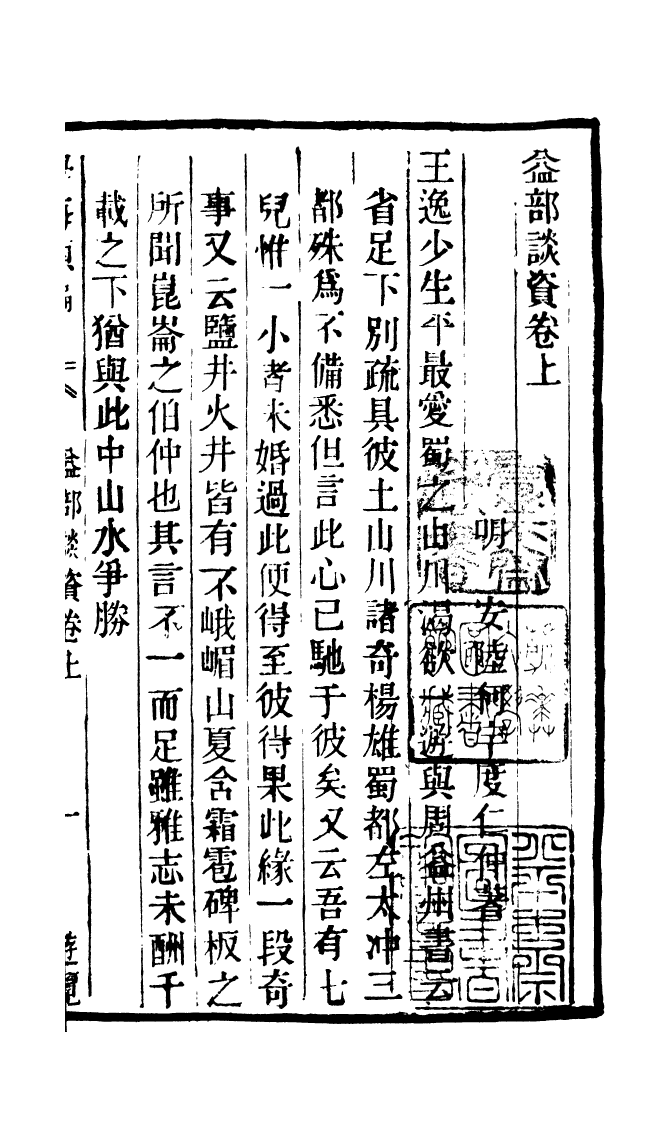 益部談資卷上
明 安陸何宇度仁仲著
王逸少生平最愛蜀之山川渴欲一遊與周益州書云
省足下別疏具彼土山川諸奇楊雄蜀都左太冲三
都殊爲不備悉但言此心已馳于彼矣又云吾有七
兒惟一小者未婚過此便得至彼得果此緣一段奇
事又云鹽井火井皆有不峨嵋山夏含霜雹碑板之
所聞崑崙之伯仲也其言不一而足雖雅志未酬千
載之下猶與此中山水爭勝
益部談資卷上 一 遊覽